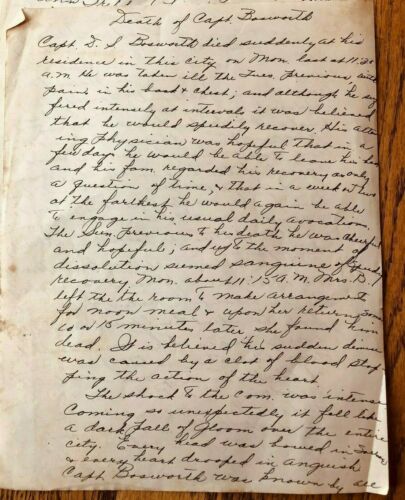 Death of Capt. Bosworth
Capt. D. S Bosworth died suddenly at his
residence in this city on Mon. last at 11.30
A.M. He was taken ill the Tues. previous, with
pain in his head & chest; and although he suf
fered intensely at intervals it was believed
that he would speedily recover. His atten
ing physician was hopeful that in a
few days he would be able to leave his bed
and his fam. regarded his recovery as only
a question of time, & that in a week or two
at the farthest he would again be able
to engage in his usual daily avocations.
The Sun. previous to his death he was cheerful
and hopeful; and up to the moment of
dissolution seemed sanguine of speedy
recovery Mon. about 11:15 A.M. Mrs. B.
left the the room to make arrangements
for noon meal & upon her return some
10 or 15 minutes later she found him
dead. It is believed his sudden demise
was caused by a clod of blood stop
ping the action of the heart
The shock to the com. was intense
Coming so unexpectedly it fell like
a dark pall of gloom over the entire
city. Every head was bowed in sorrow
& every heart drooped in anguish
Capt. Bosworth was known by all